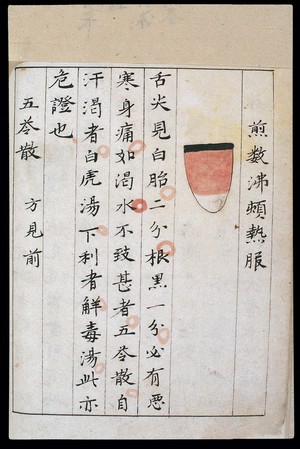 煎数沸頓熱服
舌尖見白胎二分根黑一分必有惡
寒身痛如渴水不致甚者五苓散自
汗渴者白虎湯下利者解毒湯此亦
危證也
五苓散 方見前